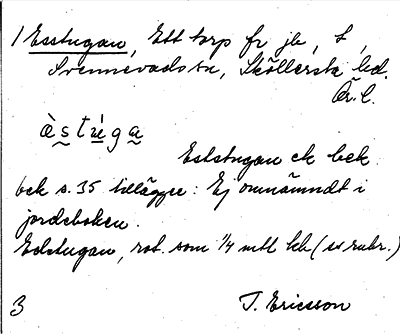 1 Esstugan, Ett torp fr jb, t,
Svennevads sn, Sköllersta hd.
Ör. l.
ὰs̰tṵ́ga̰
Eststugan ek bek
bek s. 35 tillägger: Ej omnämndt i
jordeboken.
Edstugan, rot. som 1/4 mtl kh (ss rubr.)
3 T. Ericsson